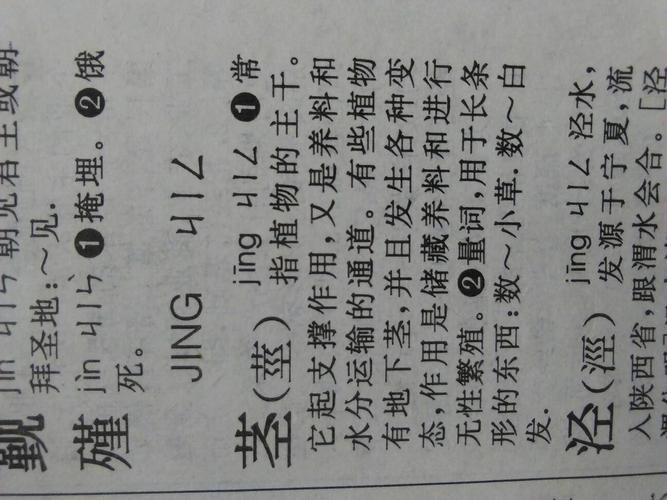 觐 jìn ㄐㄧㄣˋ 朝见君主或朝
拜圣地:～见.
殣 jìn ㄐㄧㄣˋ ❶掩埋。❷饿
死。
JING ㄐㄧㄥ
茎(莖) jīng ㄐㄧㄥ ❶常
指植物的主干。
它起支撑作用,又是养料和
水分运输的通道。有些植物
有地下茎,并且发生各种变
态,作用是储藏养料和进行
无性繁殖。❷量词,用于长条
形的东西:数～小草. 数～白
发.
泾(涇) jīng ㄐㄧㄥ 泾水,
发源于宁夏,流
入陕西省,跟渭水会合。[泾